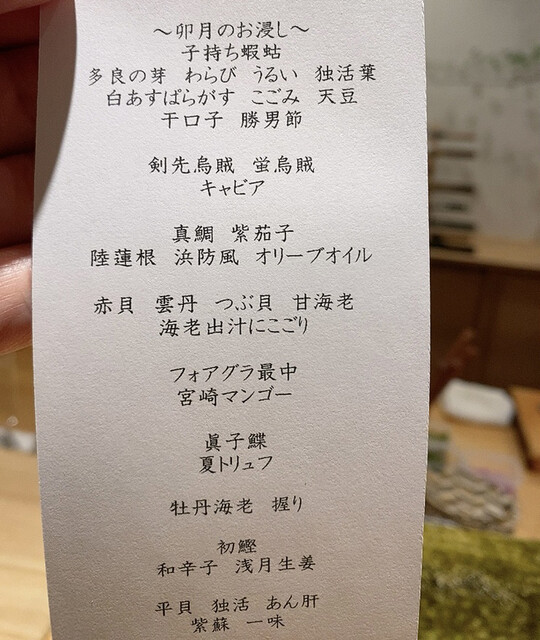 ～卯月のお浸し～
子持ち蝦蛄
多良の芽 わらび うるい 独活葉
白あすぱらがす こごみ 天豆
干口子 勝男節
剣先烏賊 蛍烏賊
キャビア
真鯛 紫茄子
陸蓮根 浜防風 オリーブオイル
赤貝 雲丹 つぶ貝 甘海老
海老出汁にこごり
フォアグラ最中
宮崎マンゴー
眞子鰈
夏トリュフ
牡丹海老 握り
初鰹
和辛子 浅月生姜
平貝 独活 あん肝
紫蘇 一味